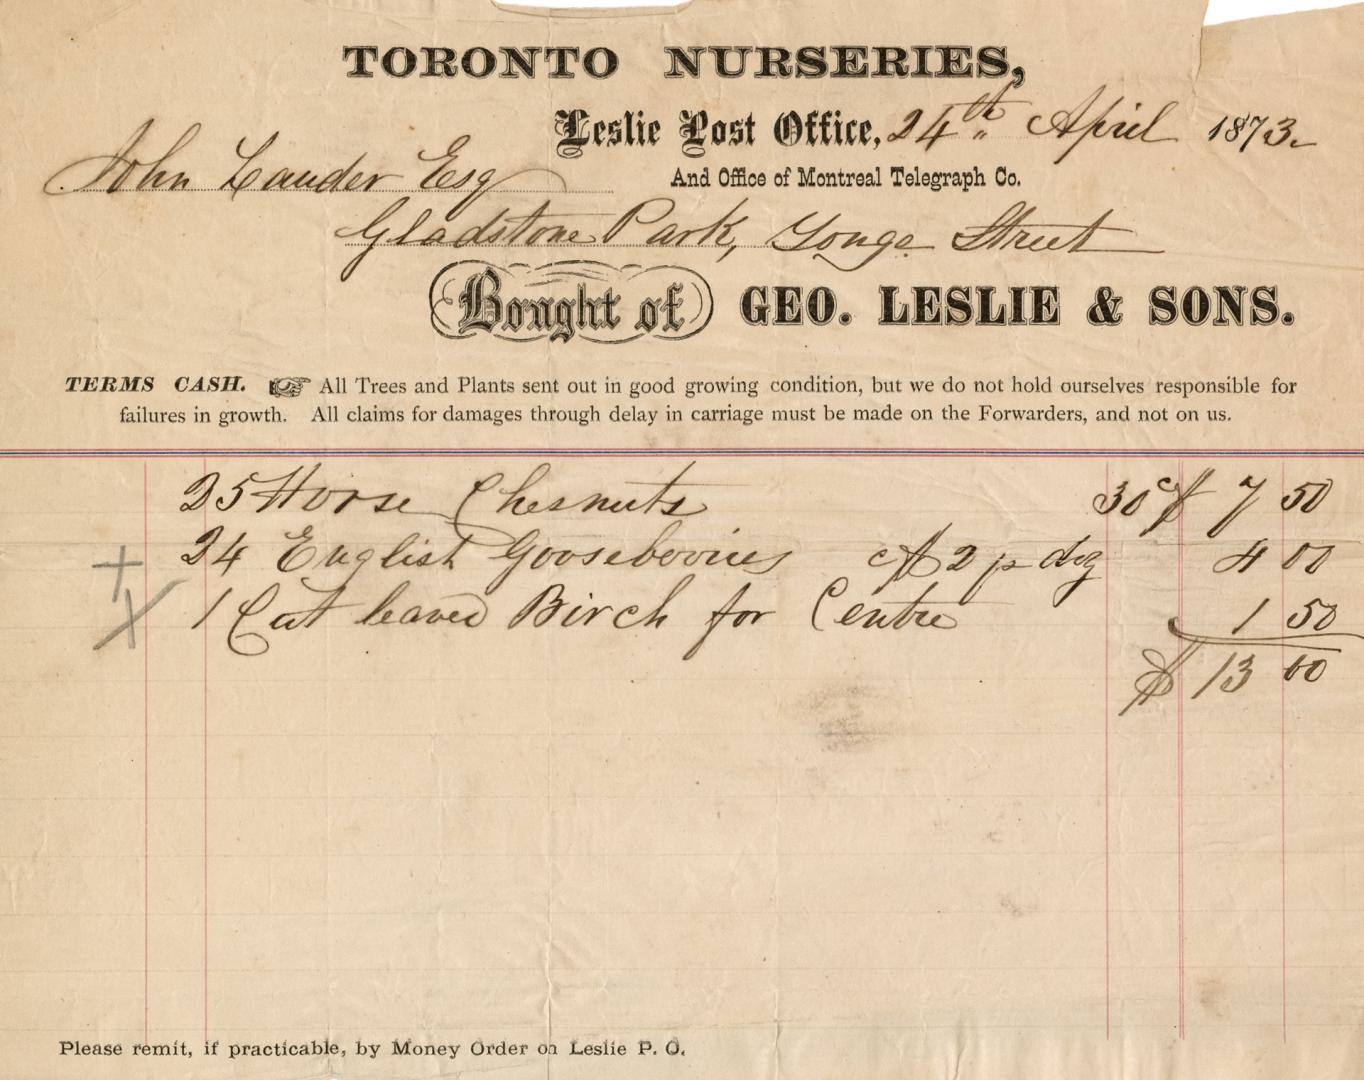 TORONTO NURSERIES,
Leslie Post Office, 24th April 1873.
John Lauder Esq
And Office of Montreal Telegraph Co.
Gladstone Park, Yonge Street
Bought of GEO. LESLIE & SONS.
TERMS CASH. ☞ All Trees and Plants sent out in good growing condition, but we do not hold ourselves responsible for
failures in growth. All claims for damages through delay in carriage must be made on the Forwarders, and not on us.
25 Horse Chesnuts 30c $ 7 50
24 English Gooseberries $2 p doz 4 00
1 Cut leaved Birch for Centre 1 50
$ 13 00
Please remit, if practicable, by Money Order on Leslie P. O.